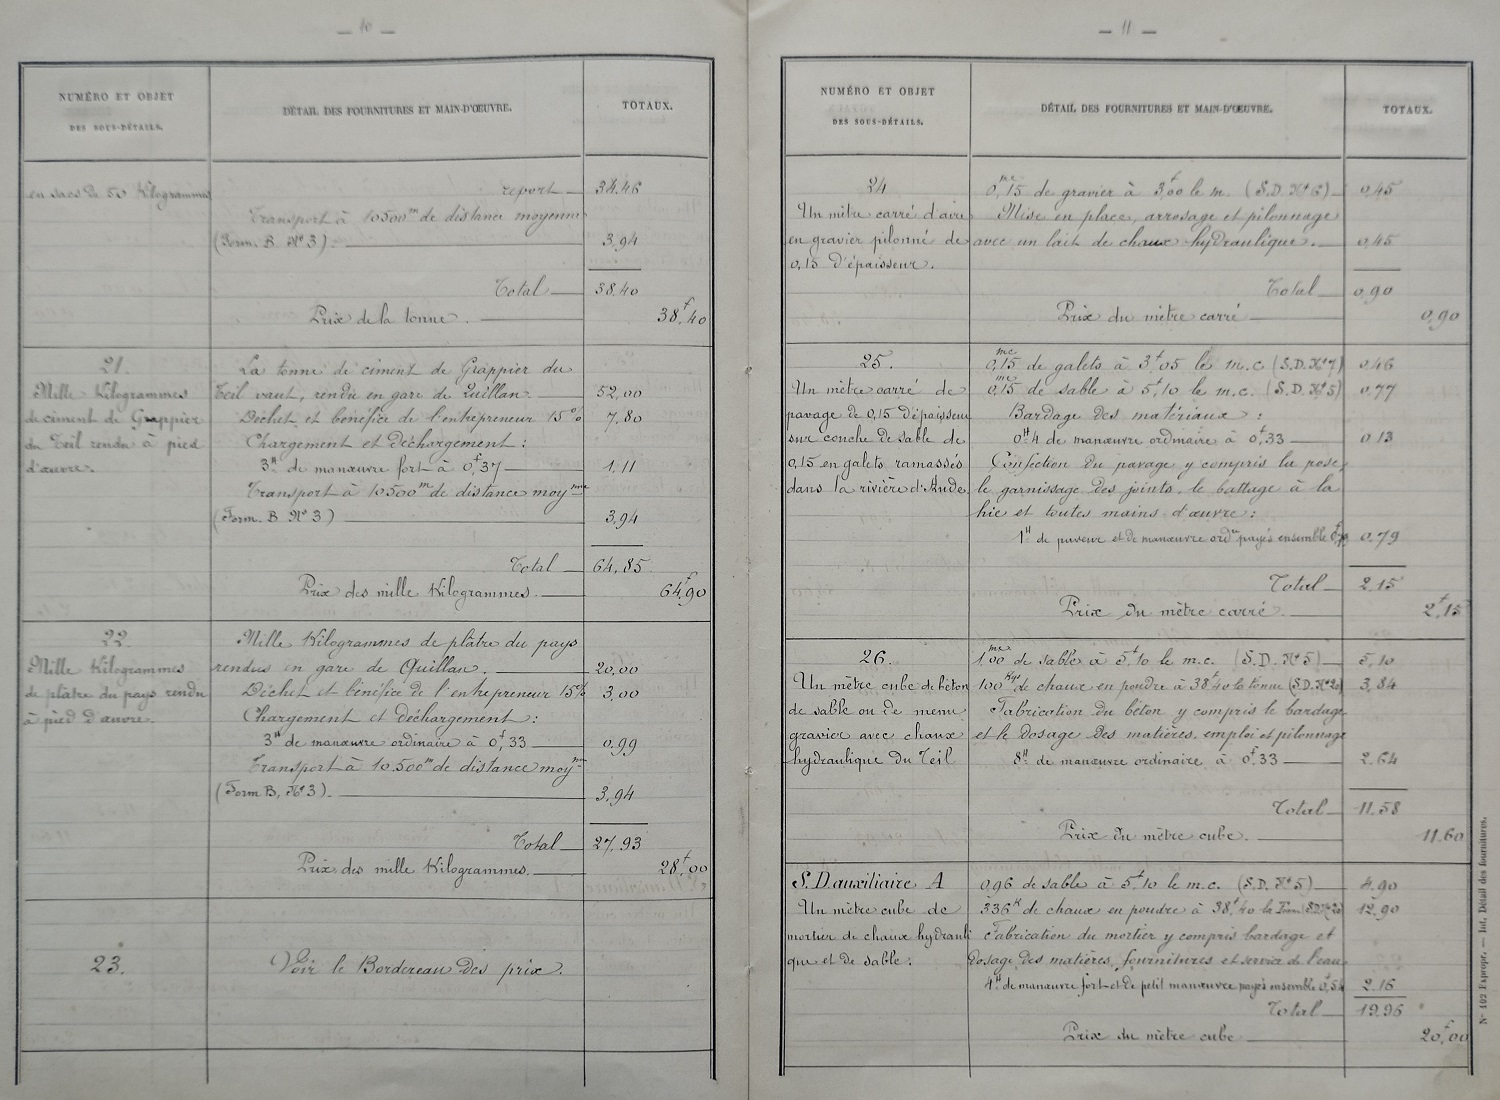 — 10 —
NUMÉRO ET OBJET
DES SOUS-DÉTAILS.
DÉTAIL DES FOURNITURES ET MAIN-D'ŒUVRE.
TOTAUX.
en sacs de 50 Kilogrammes
report — 34.46
Transport à 10500m de distance moyenne
(Form. B. N° 3) — 3,94
Total — 38.40
Prix de la tonne. — 38f,40
21.
Mille Kilogrammes
de ciment de Grappier
du Teil rendu à pied
d'œuvre.
La tonne de ciment de Grappier du
Teil vaut, rendu en gare de Quillan. 52,00
Déchet et bénéfice de l'entrepreneur 15% 7,80
Chargement et déchargement :
3H de manœuvre fort à 0f,37 — 1,11
Transport à 10500m de distance moynne
(Form. B N° 3) — 3,94
Total — 64,85
Prix des mille Kilogrammes. — 64f,90
22.
Mille Kilogrammes
de plâtre du pays rendu
à pied d'œuvre.
Mille Kilogrammes de plâtre du pays
rendus en gare de Quillan. — 20,00
Déchet et bénéfice de l'entrepreneur 15% 3,00
Chargement et déchargement :
3H de manœuvre ordinaire à 0f,33 — 0,99
Transport à 10.500m de distance moynne
(Form B. N° 3). — 3,94
Total — 27,93
Prix des mille Kilogrammes. — 28f,00
23.
Voir le Bordereau des prix.
— 11 —
NUMÉRO ET OBJET
DES SOUS-DÉTAILS.
DÉTAIL DES FOURNITURES ET MAIN-D'ŒUVRE.
TOTAUX.
24
Un mètre carré d'aire
en gravier pilonné de
0,15 d'épaisseur.
0mc,15 de gravier à 3f,00 le m. (S.D. N° 6) — 0,45
Mise en place, arrosage et pilonnage
avec un lait de chaux hydraulique. — 0,45
Total — 0,90
Prix du mètre carré — 0,90
25.
Un mètre carré de
pavage de 0,15 d'épaisseur
sur couche de sable de
0,15 en galets ramassés
dans la rivière d'Aude.
0mc,15 de galets à 3f,05 le m.c (S.D. N° 7) 0,46
0mc,15 de sable à 5f,10 le m.c. (S.D. N° 5) 0,77
Bardage des matériaux :
0H,4 de manœuvre ordinaire à 0f,33 — 0,13
Confection du pavage y compris la pose,
le garnissage des joints, le battage à la
hie et toutes mains d'œuvre :
1H de paveur et de manœuvre ordre payés ensemble 0f,79 0,79
Total — 2,15
Prix du mètre carré. — 2f,15
26.
Un mètre cube de béton
de sable ou de menu
gravier avec chaux
hydraulique du Teil
1mc,00 de sable à 5f,10 le m.c. (S.D. N° 5) — 5,10
100Kgs de chaux en poudre à 38f,40 la tonne (S.D. N° 20) 3,84
Fabrication du béton y compris le bardage
et le dosage des matières, emploi et pilonnage
8H de manœuvre ordinaire à 0f,33 — 2,64
Total — 11,58
Prix du mètre cube. — 11,60
S.D. auxiliaire A
Un mètre cube de
mortier de chaux hydrauli
que et de sable :
0,96 de sable à 5f,10 le m.c. (S.D. N° 5) — 4,90
336K de chaux en poudre à 38f,40 la Tonne (S.D. N° 20) 12,90
Fabrication du mortier y compris bardage et
dosage des matières, fournitures et service de l'eau
4H de manœuvre fort et de petit manœuvre payés ensemble 0f,54 2,16
Total — 19,96
Prix du mètre cube — 20f,00
N° 102 Expropr. — Int. Détail des fournitures.